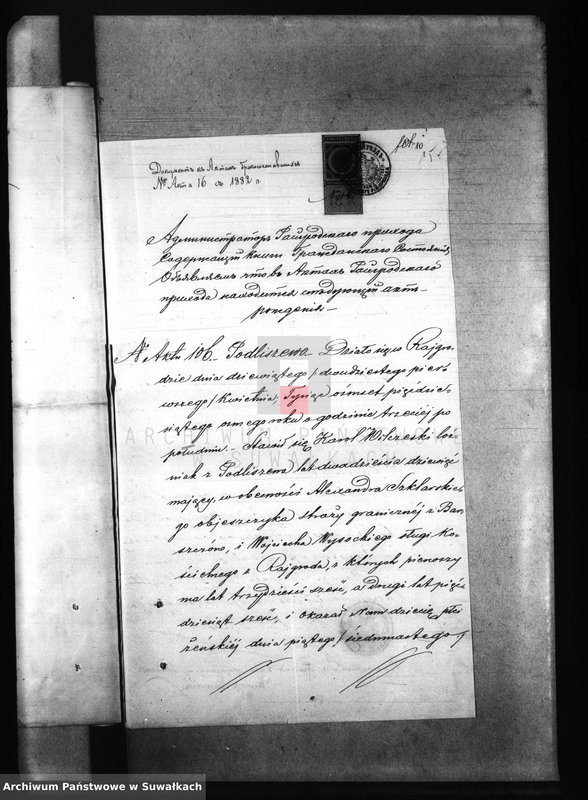 Документъ къ Актам бракосочетанiя
№ Акта 16 съ 1882 г.
Администраторъ Райгродскаго прихода
Содержащiй Книги Гражданскаго Состоянiя
Объявляемъ что въ Актахъ Райгродскаго
прихода находится слѣдующiй актъ
рожденiя —
N Aktu 106. Podliszewo. Działo się w Rajgro-
dzie dnia dziewiątego / dwudziestego pier-
wszego / Kwietnia, Tysiąc ośmset pięćdzie-
siątego ósmego roku o godzinie trzeciej po
południu. Stawił się Karol Wilczeski
z Podliszewa lat dwadzieścia dziewięć
mający, w obecności Alexandra Szklarskie-
go objeszczyka straży granicznej z
i Wojciecha Wysockiego sługi Ko-
ścielnego z Rajgroda, z których pierwszy
ma lat trzydzieści sześć, a drugi lat pięć-
dziesiąt sześć, i okazał Nam dziecię płci
żeńskiej dnia piątego / siedmnastego /
ARCHIWUM PAŃSTWOWE
W SUWAŁKACH
Archiwum Państwowe w Suwałkach